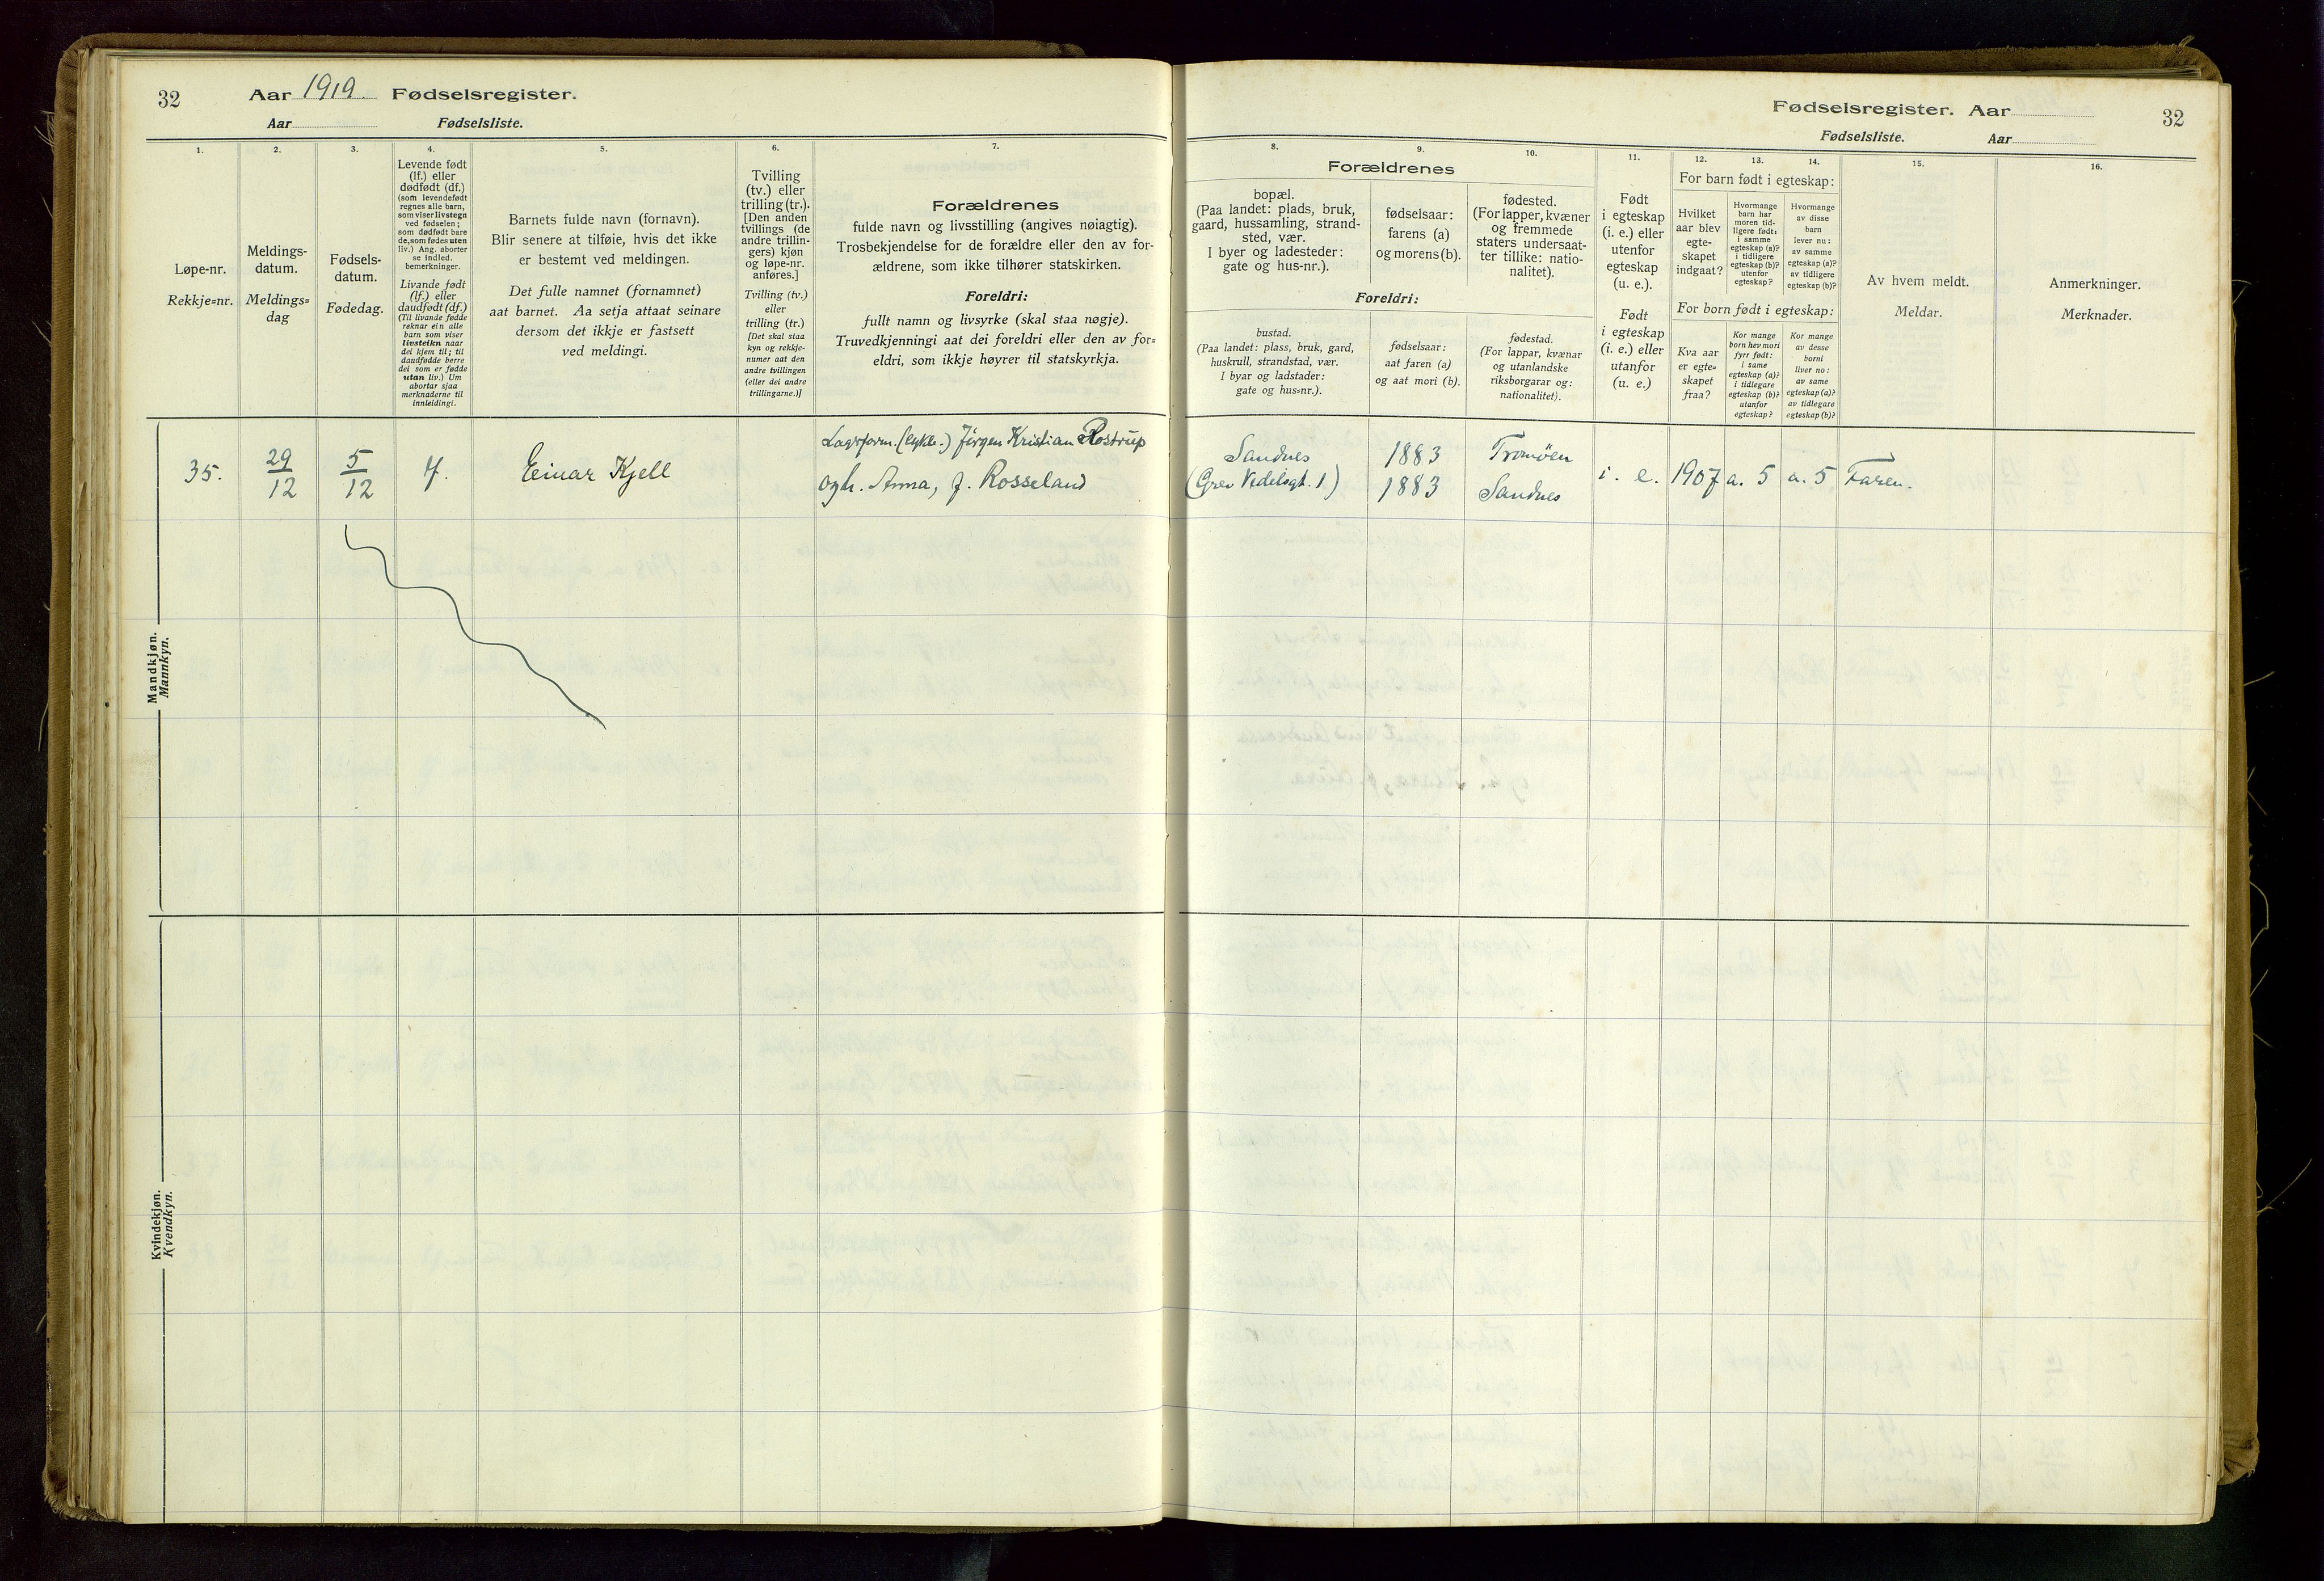 32
Aar 1919. Fødselsregister.
Aar Fødselsliste.
1.
Løpe-nr.
Rekkje=nr.
2.
Meldings-
datum.
Meldings=
dag
3.
Fødsels-
datum.
Fødedag.
4.
Levende født
(lf.) eller
dødfødt (df.)
(som levendefødt
regnes alle barn,
som viser livstegn
ved fødselen;
som dødfødt bare
de, som fødes uten
liv.) Ang. aborter
se indled.
bemerkninger.
Livande født
(lf.) eller
daudfødt (df.)
(Til livande fødde
reknar ein alle
barn som viser
livsteikn naar
dei kjem til; til
daudfødde berre
dei som er fødde
utan liv.) Um
abortar sjaa
merknaderne til
innleidingi.
5.
Barnets fulde navn (fornavn).
Blir senere at tilføie, hvis det ikke
er bestemt ved meldingen.
Det fulle namnet (fornamnet)
aat barnet. Aa setja attaat seinare
dersom det ikkje er fastsett
ved meldingi.
6.
Tvilling
(tv.) eller
trilling (tr.).
[Den anden
tvillings (de
andre trillin-
gers) kjøn
og løpe-nr.
anføres.]
Tvilling (tv.)
eller
trilling (tr.)
[Det skal staa
kyn og rekkje-
numer aat den
andre tvillingen
(eller dei andre
trillingarne.)]
7.
Forældrenes
fulde navn og livsstilling (angives nøiagtig).
Trosbekjendelse for de forældre eller den av for-
ældrene, som ikke tilhører statskirken.
Foreldri:
fullt namn og livsyrke (skal staa nøgje).
Truvedkjenningi aat dei foreldri eller den av for=
eldri, som ikkje høyrer til statskyrkja.
Mandkjøn.
Mannkyn.
35.
29/12
5/12
lf.
Einar Kjell
Lagerform. (cykle.) Jørgen Kristian Rostrup
ogh. Anna, f. Rosseland
Kvindekjøn.
Kvendkyn.
Fødselsregister. Aar
32
Fødselsliste. Aar
8.
Forældrenes
bopæl.
(Paa landet: plads, bruk,
gaard, hussamling, strand-
sted, vær.
I byer og ladesteder:
gate og hus-nr.).
Foreldri:
bustad.
(Paa landet: plass, bruk, gard,
huskrull, strandstad, vær.
I byar og ladstader:
gate og hus=nr.).
9.
fødselsaar:
farens (a)
og morens (b).
fødselsaar:
aat faren (a)
og aat mori (b).
10.
fødested.
(For lapper, kvæner
og fremmede
staters undersaat-
ter tillike: natio-
nalitet).
fødestad.
(For lappar, kvænar
og utanlandske
riksborgarar og:
nationalitet).
11.
Født
i egteskap
(i. e.) eller
utenfor
egteskap
(u. e.).
Født
i egteskap
(i. e.) eller
utanfor
(u. e.)
12. 13. 14.
For barn født i egteskap:
Hvilket
aar blev
egte-
skapet
indgaat?
Hvormange
barn har
moren tid-
ligere født:
i samme
egteskap (a)?
i tidligere
egteskap (b)?
utenfor
egteskap?
Hvormange
av disse
barn
lever nu:
av samme
egteskap (a)?
av tidligere
egteskap (b)?
For born født i egteskap:
Kva aar
er egte=
skapet
fraa?
Kor mange
born hev mori
fyrr født:
i same
egteskap (a)?
i tidlegare
egteskap (b)?
utanfor
egteskap?
Kor mange
av desse
borni
liver no:
av same
egteskap (a)?
av tidlegare
egteskap (b)?
15.
Av hvem meldt.
Meldar.
16.
Anmerkninger.
Merknader.
Sandnes
(Grev Vedelsgt. 1)
1883
1883
Tromøen
Sandnes
i. e.
1907
a. 5
a. 5
Faren.